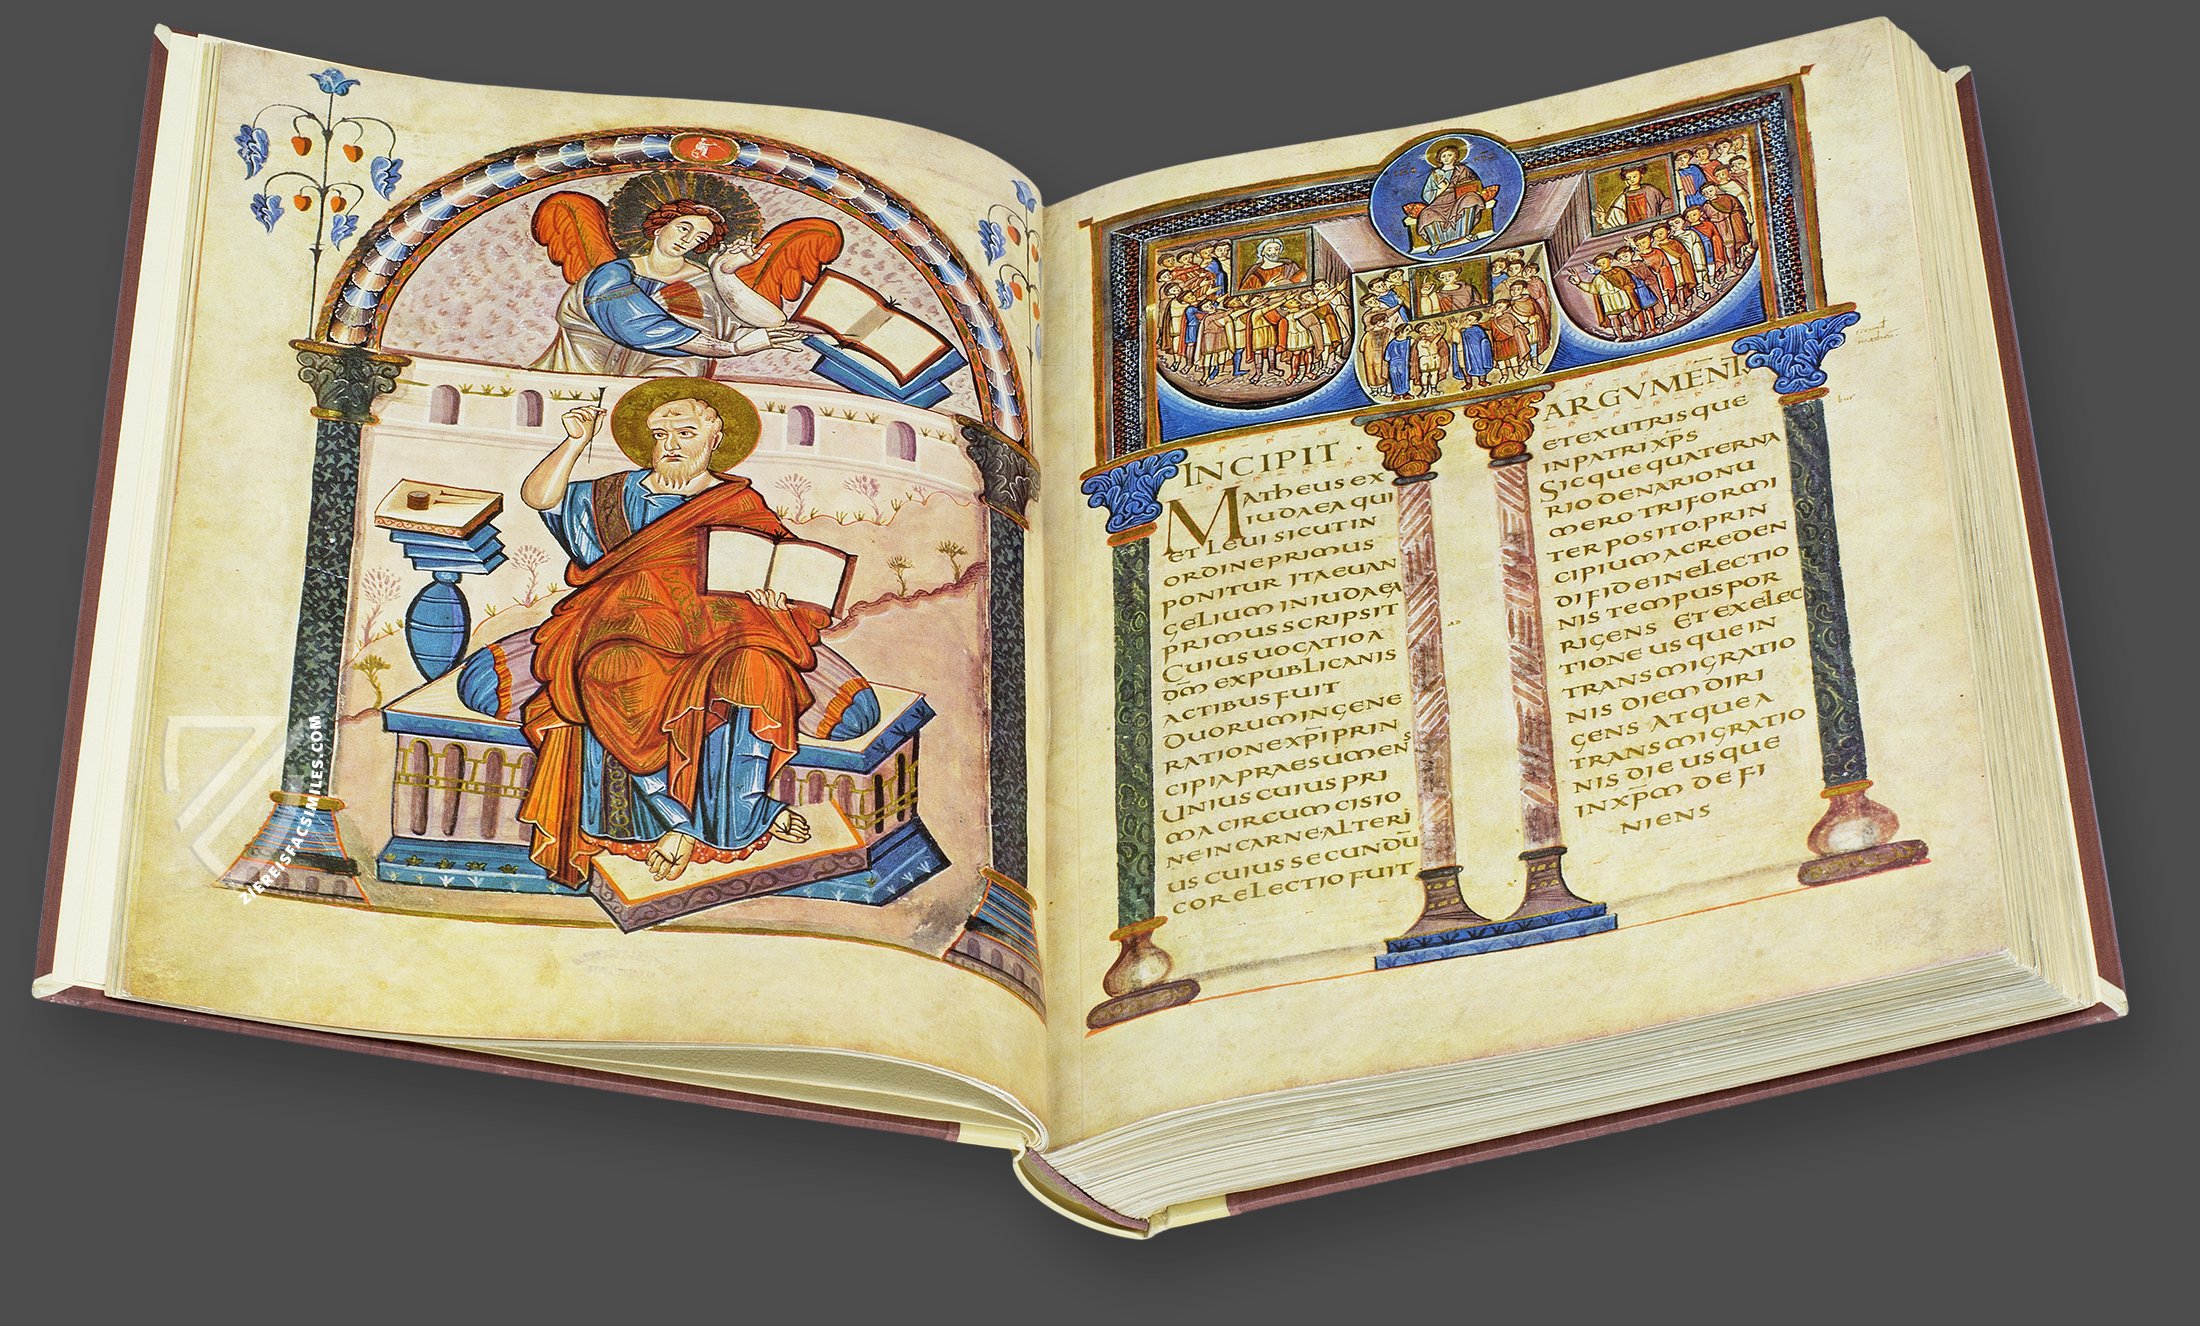 INCIPIT
MATHEUS EX
IUDAEA QUI
ET LEUI SICUT IN
ORDINE PRIMUS
PONITUR ITA EUAN
GELIUM IN IUDAEA
PRIMUS SCRIPSIT
CUIUS UOCATIO A
DM̅ EX PUBLICANIS
ACTIBUS FUIT
DUORUM IN GENE
RATIONE XPI PRIN
CIPIA PRAESUMENS
UNIUS CUIUS PRI
MA CIRCUMCISIO
NE IN CARNE ALTERI
US CUIUS SECUNDŪ
COR ELECTIO FUIT
ARGVMENT̄
ET EX UTRISQUE
IN PATRI XP̅S
SICQUE QUATERNA
RIO DENARIO NU
MERO TRIFORMI
TER POSITO. PRIN
CIPIUM A CREDEN
DI FIDE IN ELECTIO
NIS TEMPUS POR
RIGENS ET EX ELEC
TIONE USQUE IN
TRANSMIGRATIO
NIS DIEM DIRI
GENS ATQUE A
TRANSMIGRATIO
NIS DIE USQUE
IN XP̅M DEFI
NIENS
ZIEREISFACSIMILES.COM